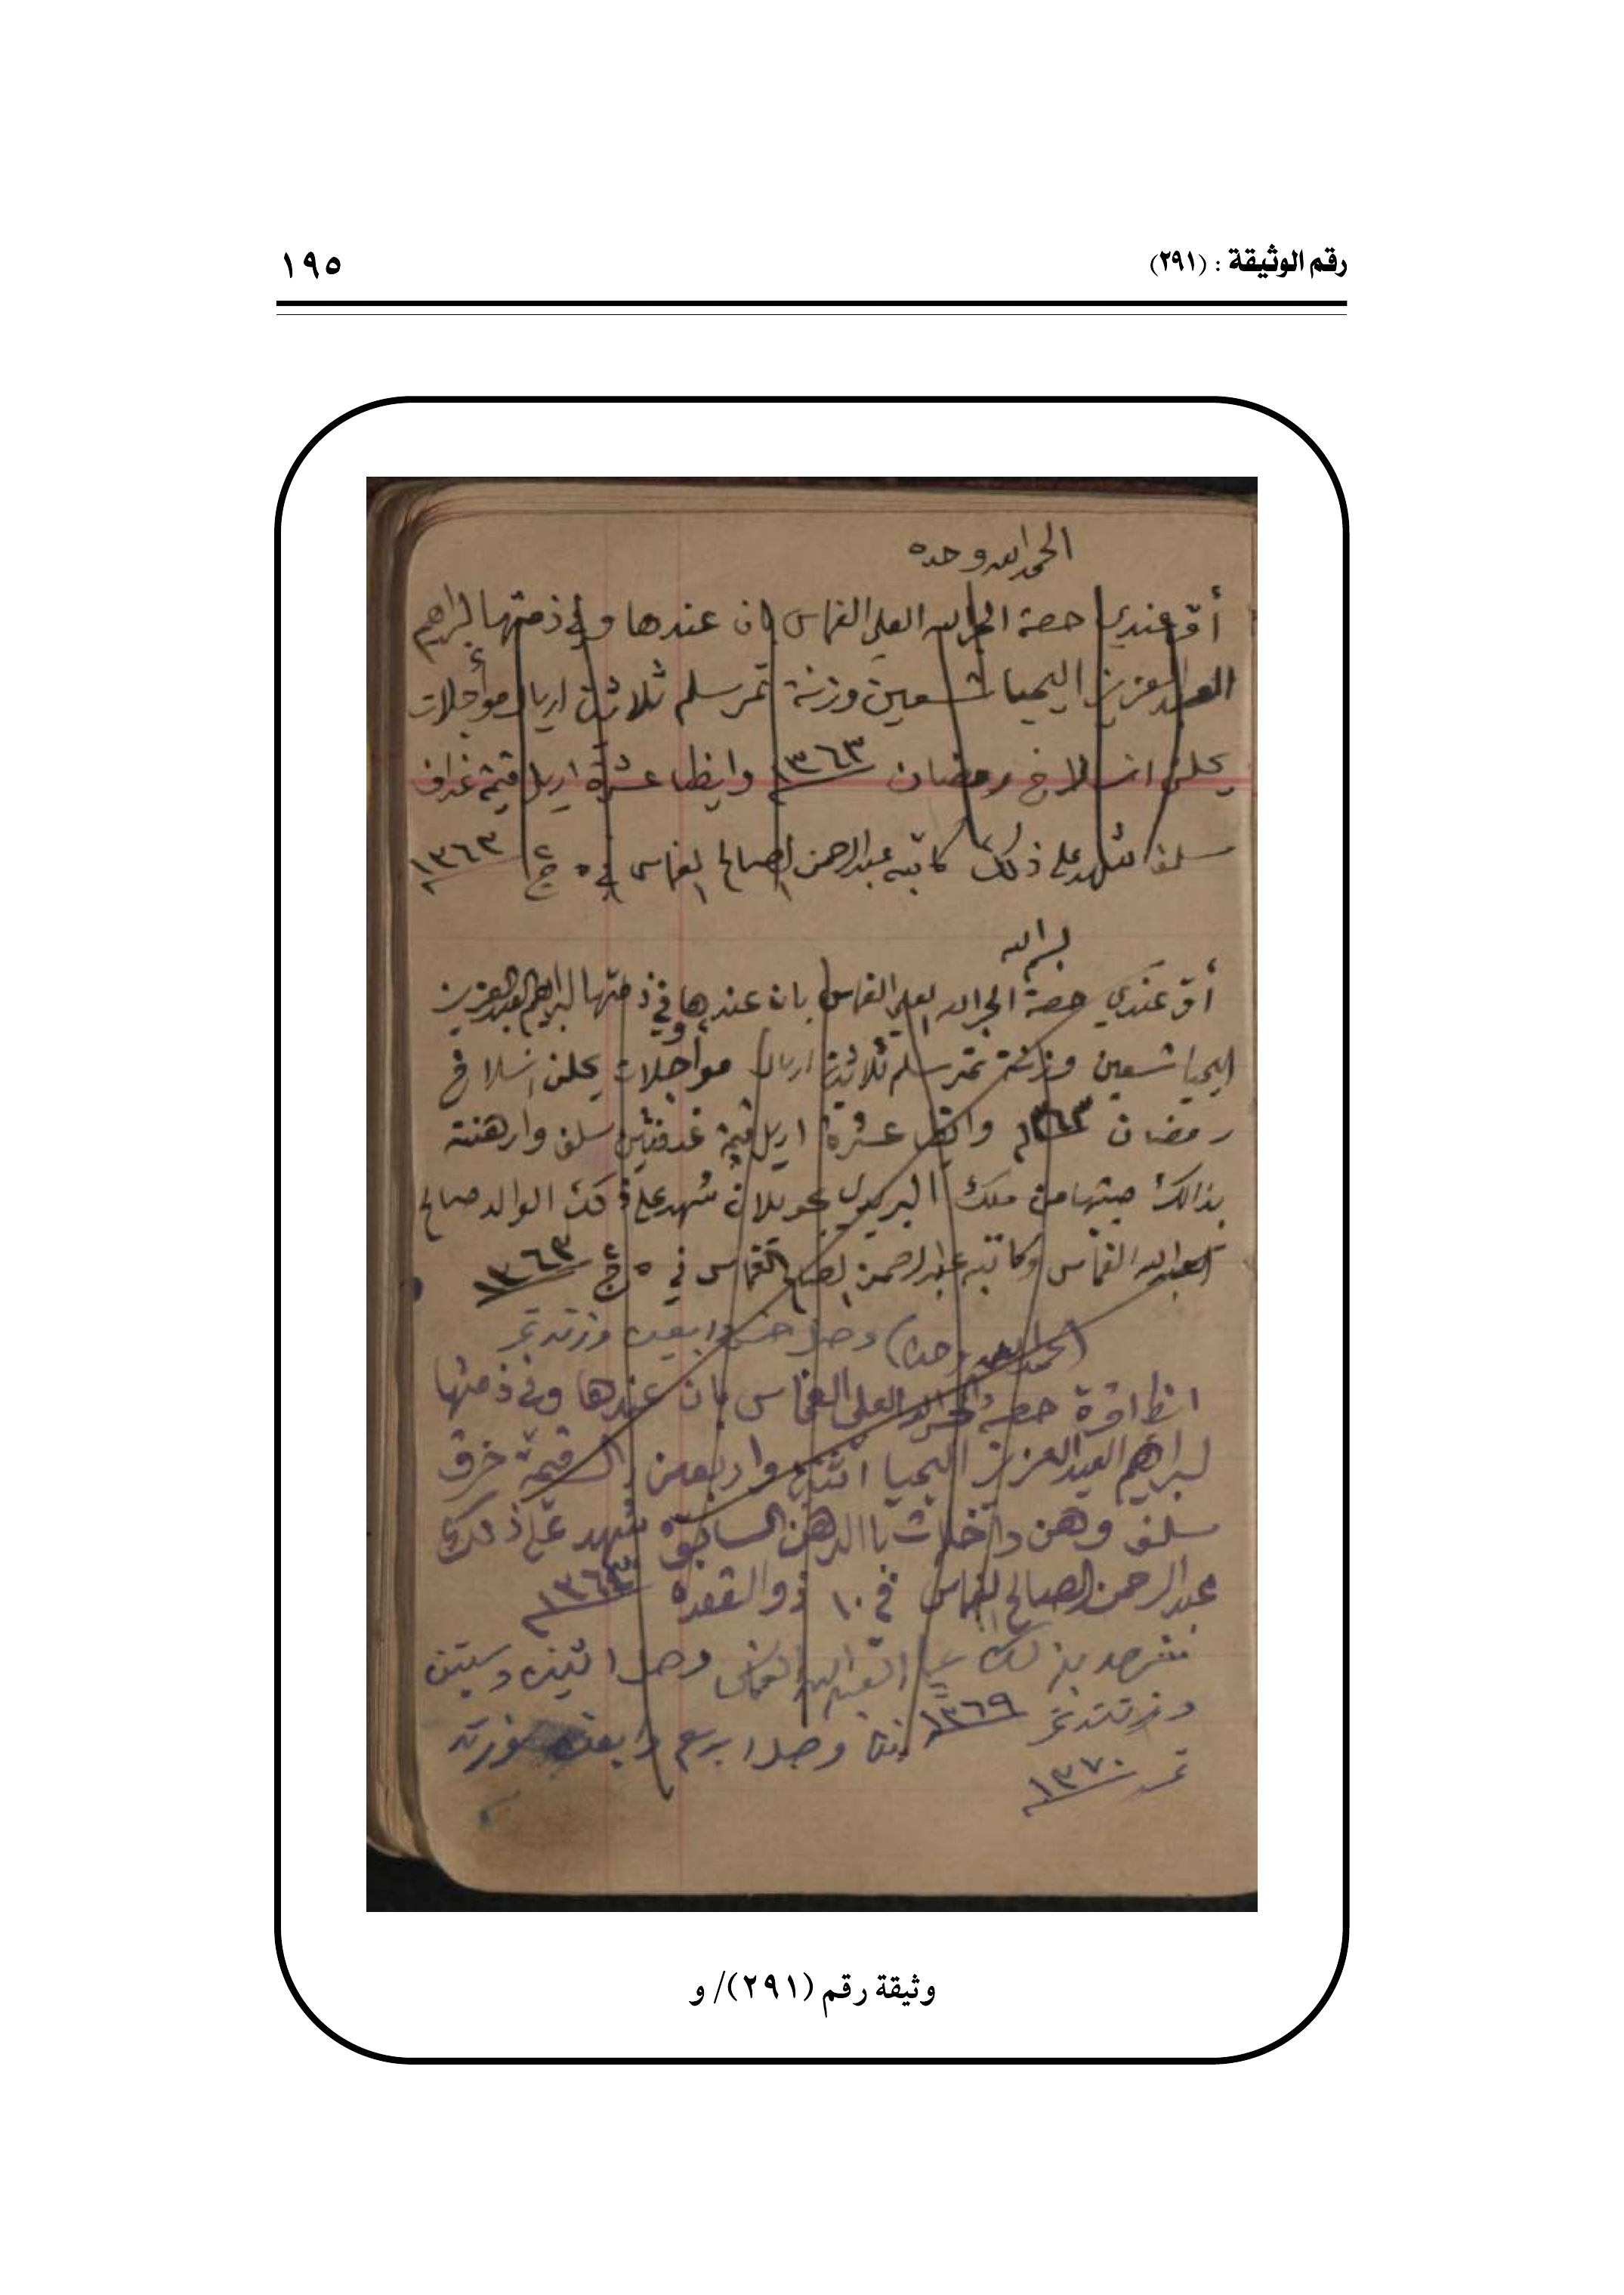 رقم الوثيقة : (٢٩١)
١٩٥
الحمد لله وحده
أقر عندي حصة الجارالله العلي الغماس بان عندها وفي ذمتها لبراهيم
العبدالعزيز اليحيا تسعين وزنة تمر سلم ثلاثين اريال مؤجلات
يحلن انسلاخ رمضان ١٣٦٣ وايظا عشرة اريل قيمة غداف
سلف شهد على ذلك كاتبه عبدالرحمن الصالح الغماس في ٥ ج٢ ١٣٦٣
بسم الله
أقر عندي حصة الجارالله العلي الغماس بان عندها وفي ذمتها لبراهيم العبدالعزيز
اليحيا تسعين وزنة تمر سلم ثلاثين اريال مواجلات يحلن انسلاخ
رمضان ١٣٦٣ عشرة اريل قيمة سلف وارهنته
بذالك من ملك شهد على ذلك الوالد صالح
العبدالله الغماس وكاتبه عبدالرحمن الصالح الغماس في ٥ ج٢ ١٣٦٣
وصل خمس واربعين وزنة تمر
(الحمد لله وحده)
ايظا اقرة حصة الجارالله العلي الغماس بان عندها وفي ذمتها
لبراهيم العبدالعزيز اليحيا اثنين واربعين قيمة خرق
سلف وهن داخلات باالرهن السابق شهد على ذلك
عبدالرحمن الصالح الغماس في ١٠ ذوالقعده ١٣٦٣
بذلك علي العبدالله الغماس وصل اثنين وستين
وزنة تمر ١٣٦٩ وصل اربع واربعين وزنة
تمر ١٣٧٠
وثيقة رقم (٢٩١)/ و